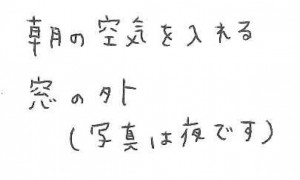 朝の空気を入れる
窓の外
(写真は夜です)